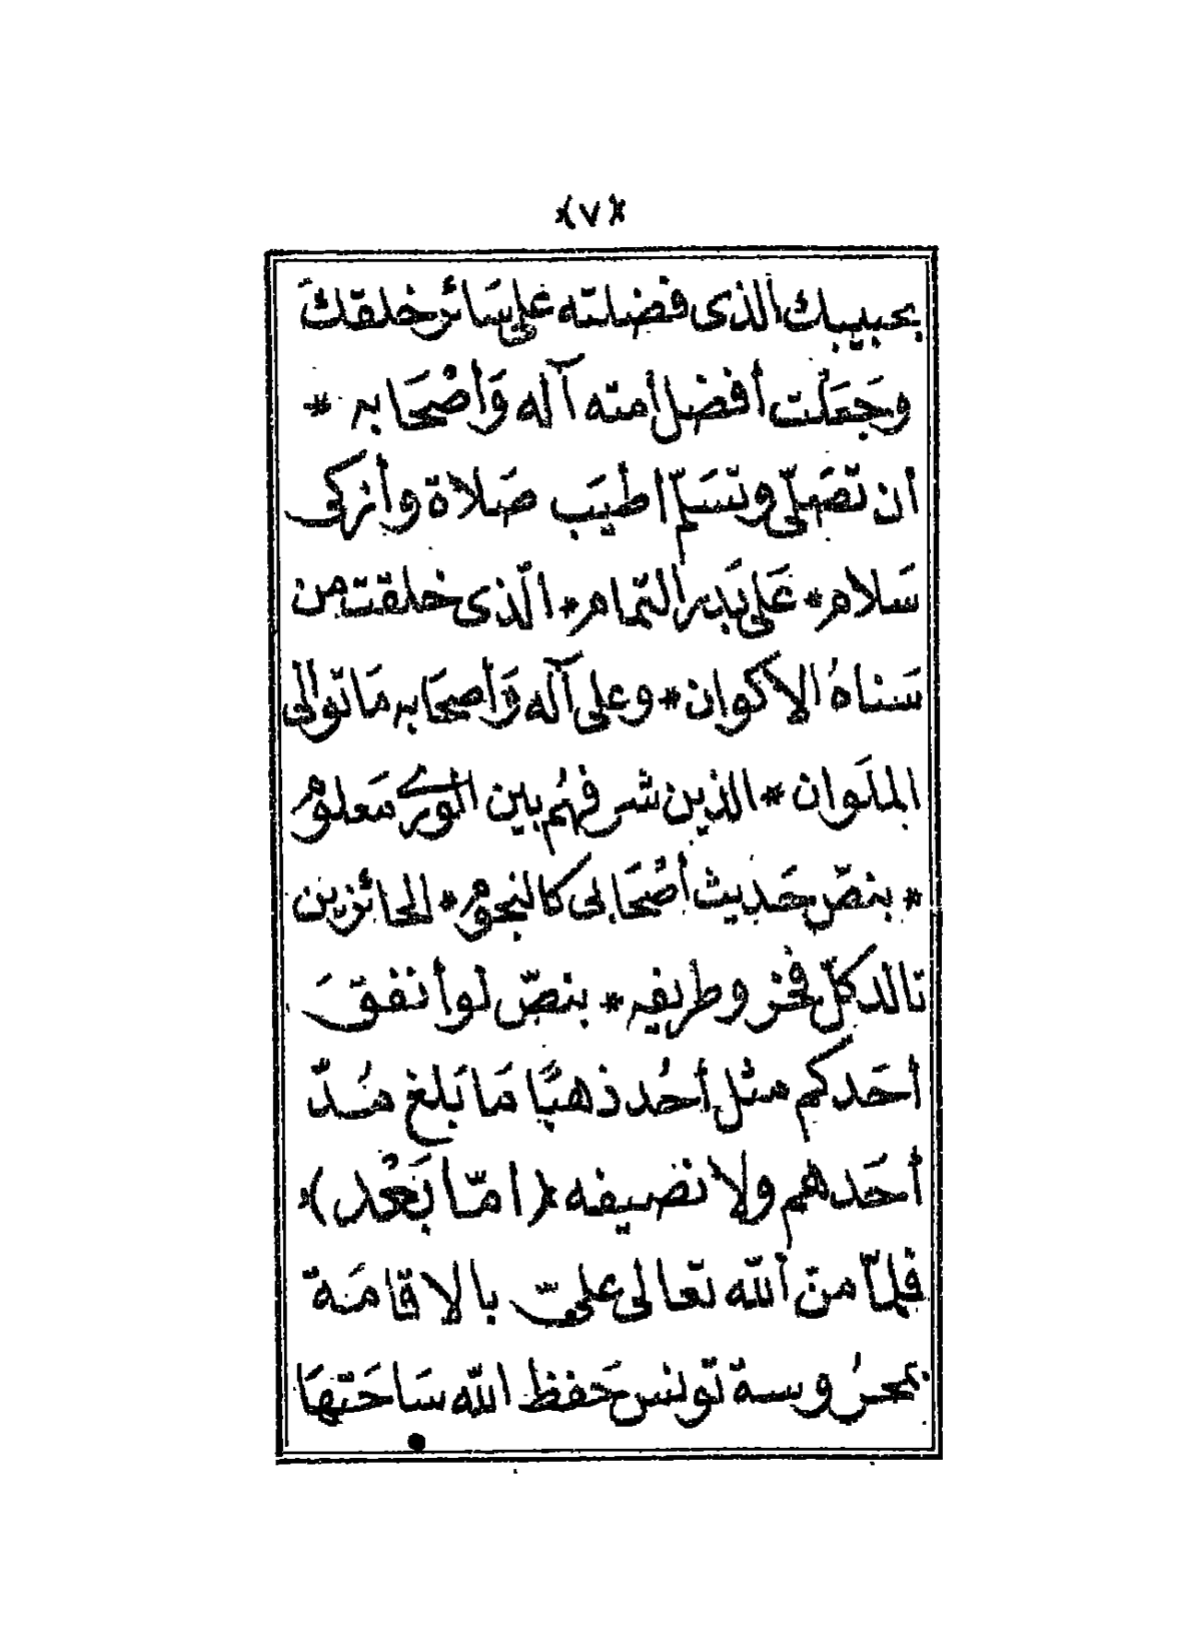 ﴿٧﴾
بحبيبك الذى فضلته على سَائر خلقكَ
وجَعَلت أفضل أمته آله وَأصْحَابه *
ان تصَلّى وتسَلّم أطيَب صَلاة وأزكى
سَلام * عَلى بَدر التمام * الّذى خلقت من
سَناهُ الاكوان * وعلى آله وَأصحَابه مَا توالى
الملَوان * الذين شرفهُم بين الورى مَعلوم
* بنصّ حَديث أصْحَابى كالنجوم * الحائزين
تالد كلّ فخْر وطريفه * بنصّ لو أنفقَ
أحَدكم مثل أحُد ذهبًا مَا بَلغ مُدّ
أحَدهم ولا نصيفه ﴿امّا بَعْد﴾
فلمّا منّ الله تعالى علىّ بالاقامَة
بمحرُوسة تونس حَفظ الله سَاحَتهَا